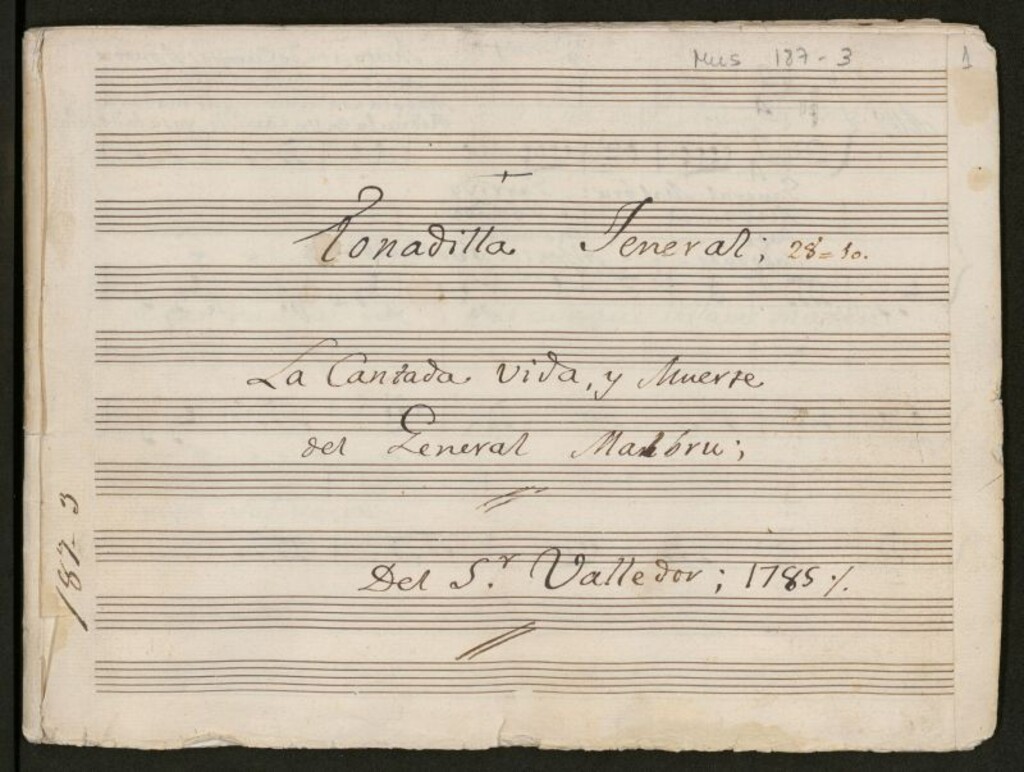 Mus 187-3
1
+
Tonadilla Jeneral; 28=10.
La Cantada vida, y Muerte
del General Malbru;
Del S.r Valledor; 1785 ./.
187-3